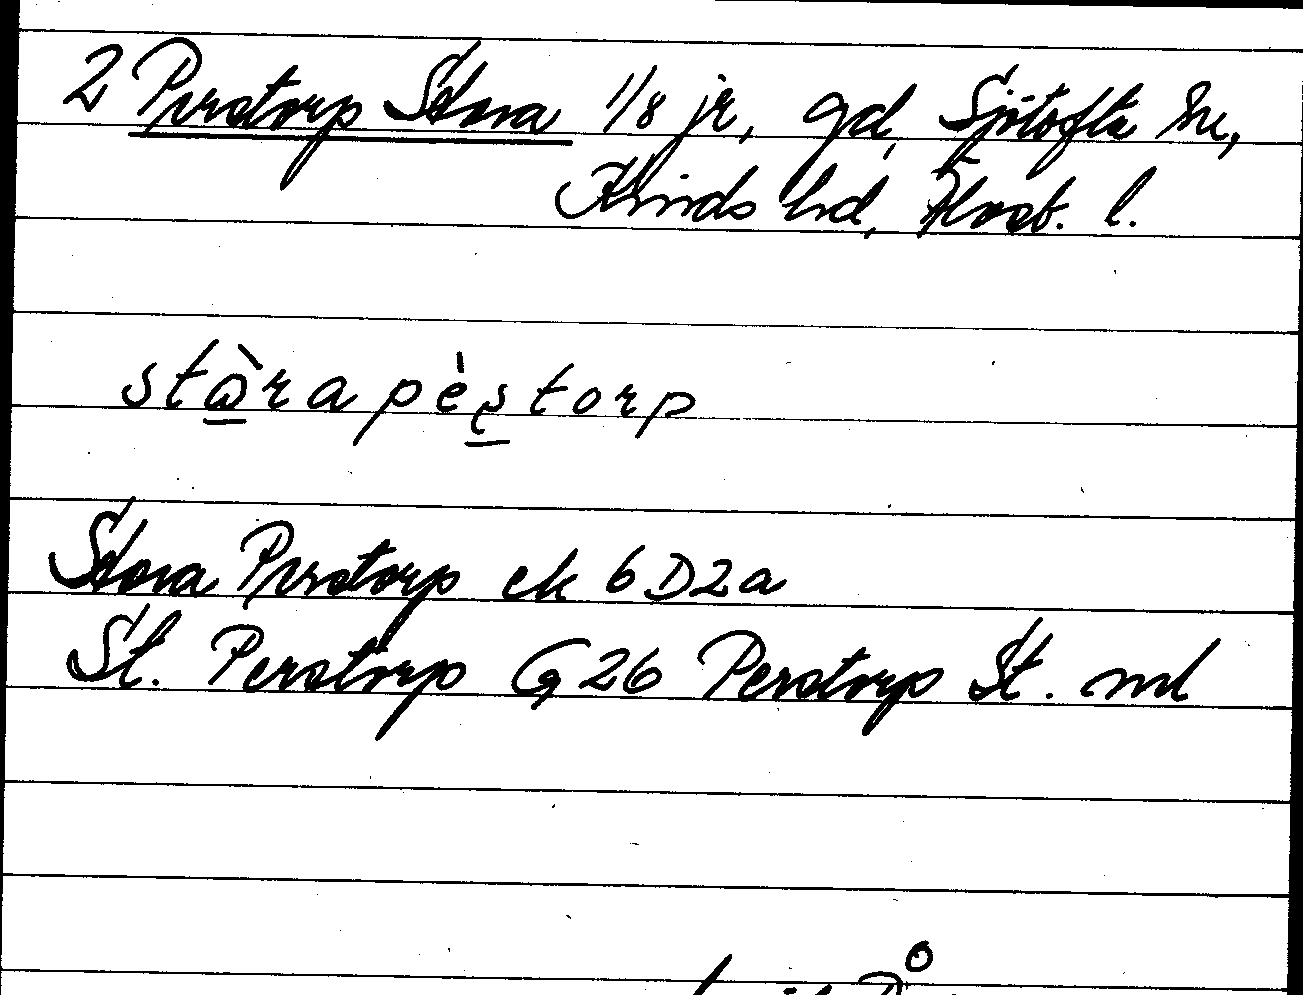 2 Perstorp Stora 1/8 jr, gd, Sjötofta sn,
Kinds hd, Älvsb. l.
stòrapèstorp
Stora Perstorp ek 6D2a
St. Perstorp G26 Perstorp St. ml